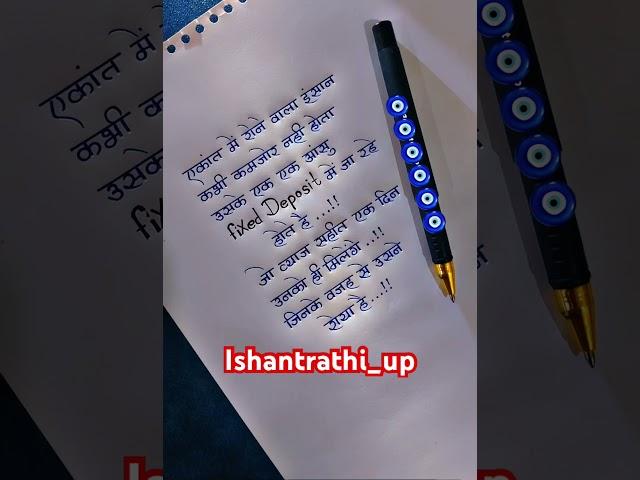 एकांत में रोने वाला इंसान
कभी कमजोर नही होता
उसके एक एक आसु
fixed Deposit में जा रहे
होते है ...!!
जो ब्याज सहीत एक दिन
उनको ही मिलेंगे ..!!
जिनके वजह से उसने
रोया है ...!!
Ishantrathi_up